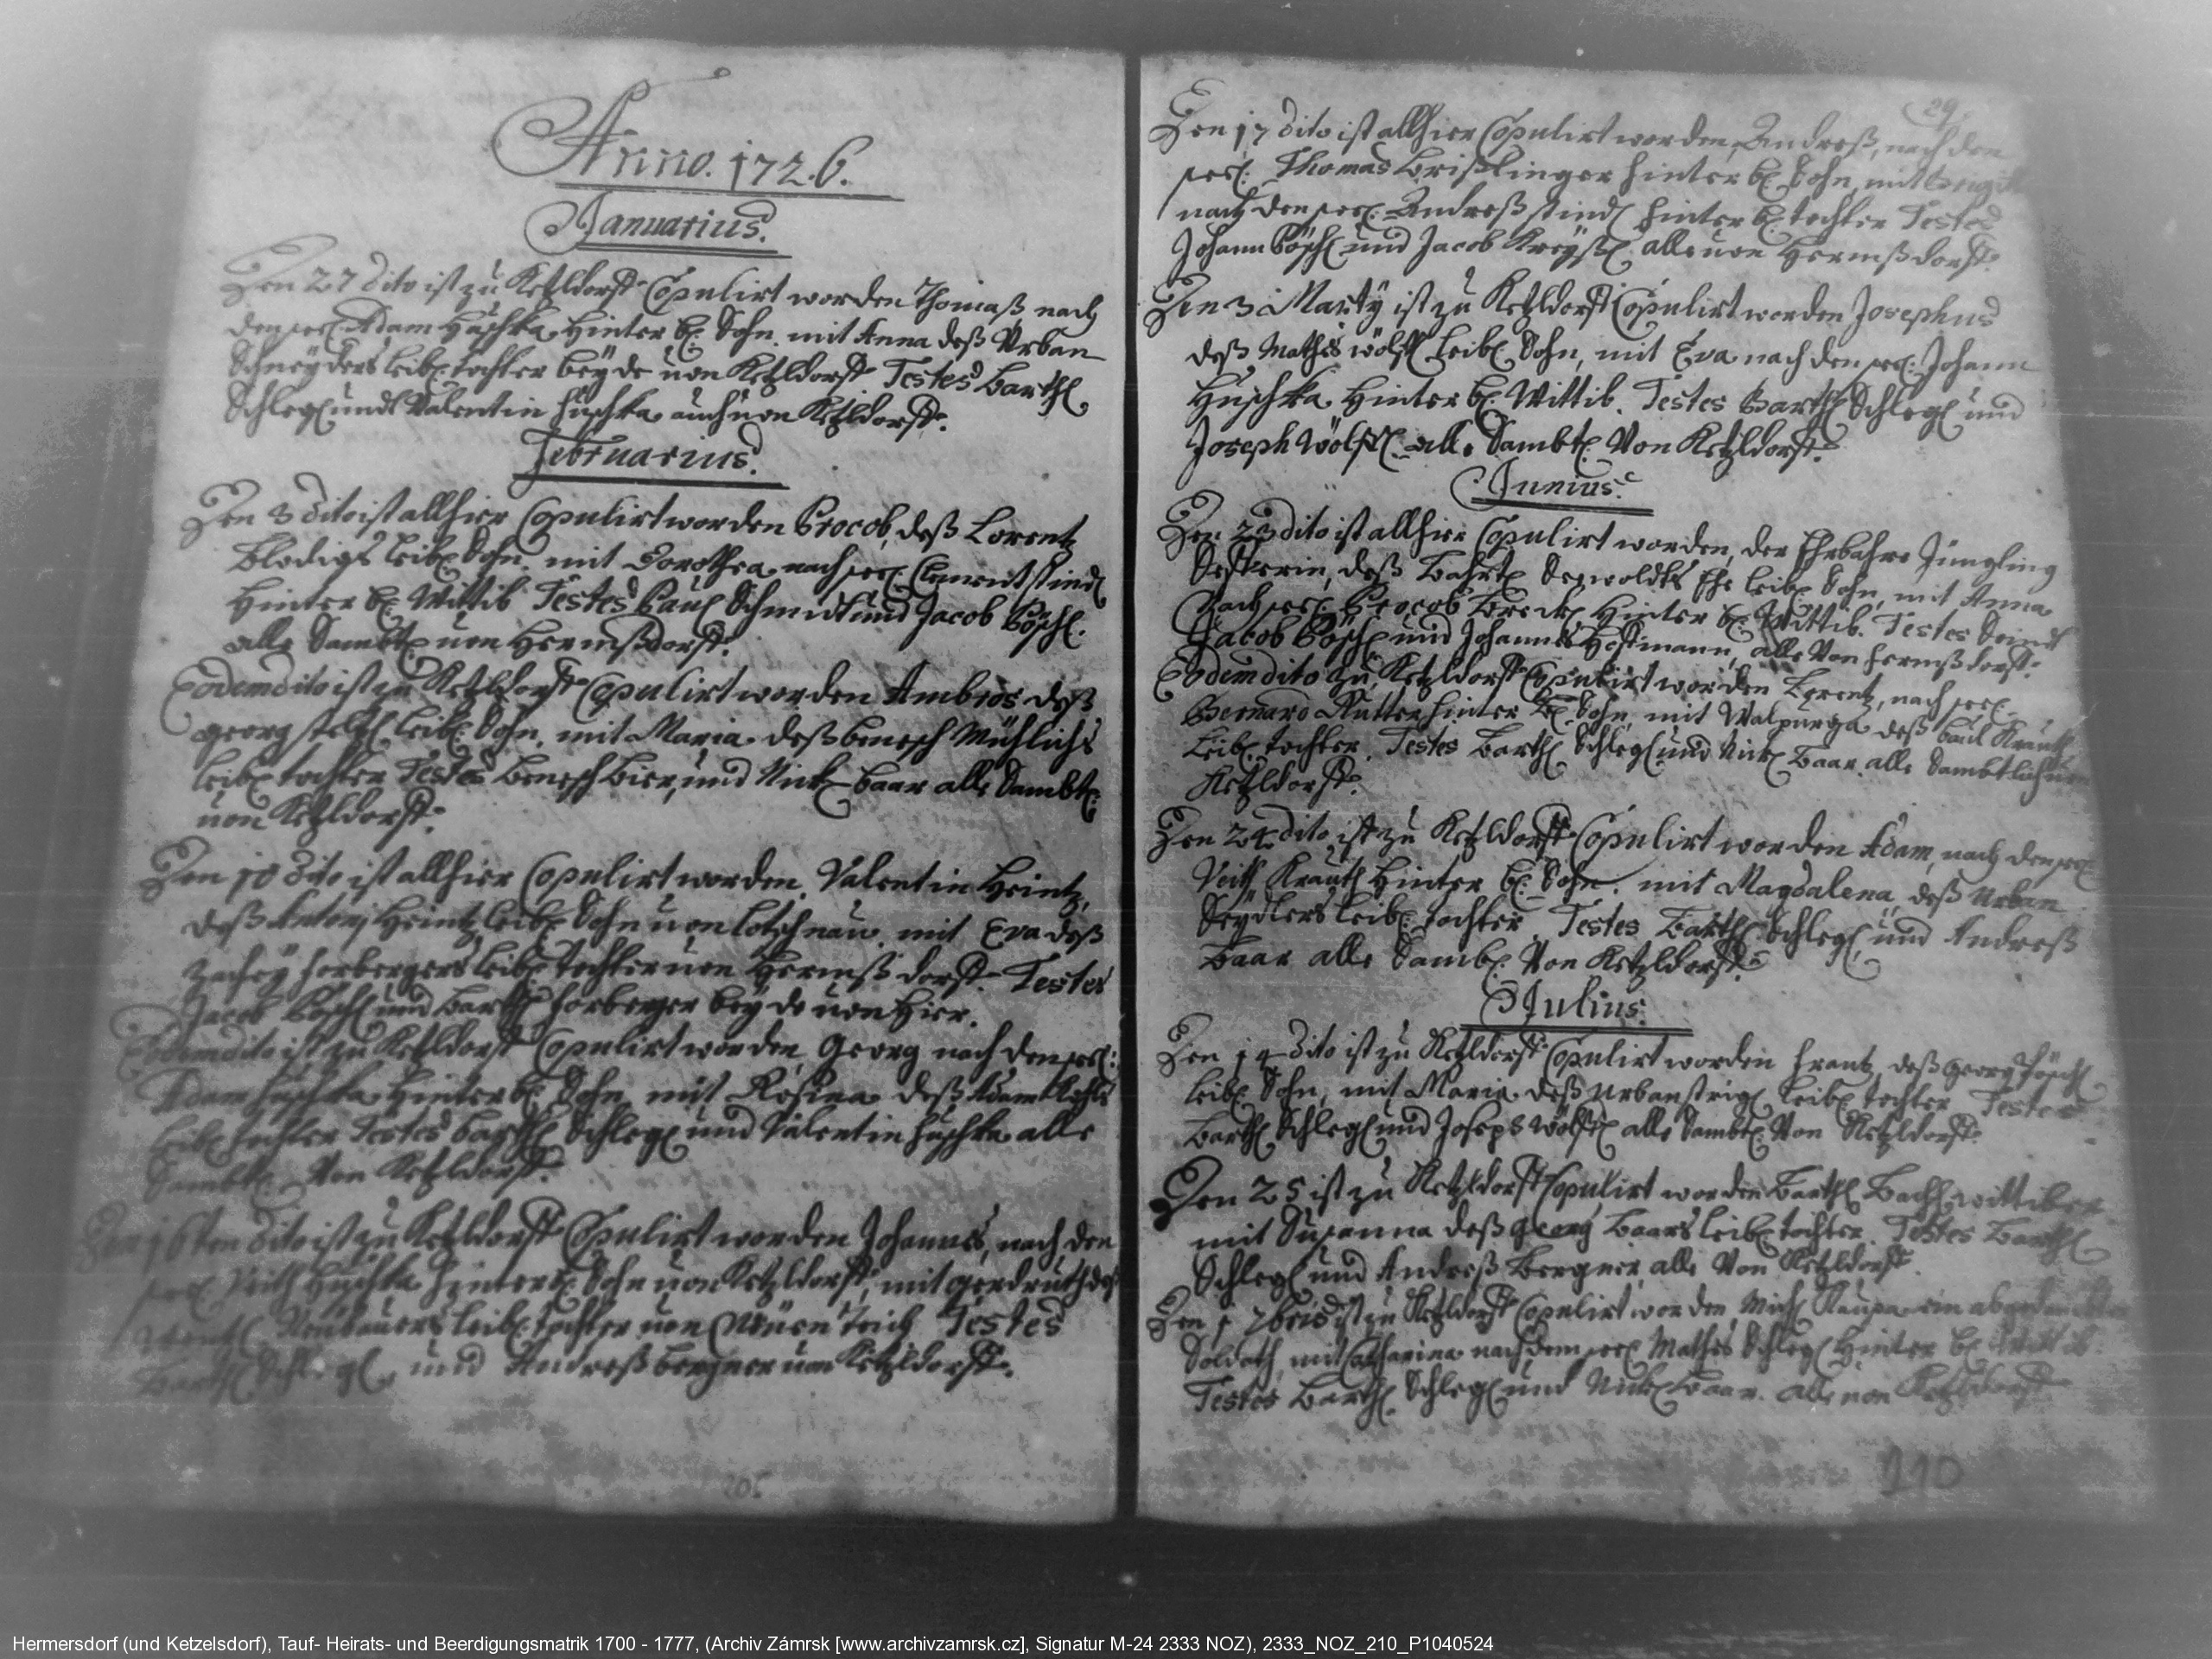 Anno. 1726.
Januarius.
Den 27 dito ist zu Ketzldorff Copulirt worden Thomaß nach
den seel: Adam Huschka Hinter bl: Sohn. mit Anna deß Urban
Schneyders leibl: tochter beyde uon Ketzldorff. Testes Barthl
Schlegl und Valentin Huschka auch uon Ketzldorff.
Februarius.
Den 3 dito ist allhier Copulirt worden Procob, deß Lorentz
Blodigs leibl: Sohn. mit Dorothea nach seel: Clement
Hinter bl: Wittib Testes Paul Schmidt und Jacob Pöschl.
alle Sambtl: uon Hermßdorff.
Eodem dito ist zu Ketzldorff Copulirt worden Ambros deß
georg leibl: Sohn. mit Maria deß benesch Mühlichs
leibl: tochter Testes Benesch Bier, und Nickl Baar alle Sambtl:
uon Ketzldorff.
Den 10 dito ist allhier Copulirt worden Valentin Heintz,
deß Antonj Heintz leibl: Sohn uon Lotschnau. mit Eva deß
Zachey Horbergers leibl: tochter uon Hermßdorff. Testes
Jacob Pöschl und Barthl Horberger beyde uon Hier.
Eodem dito ist zu Ketzldorff Copulirt worden Georg nach den seel:
Adam Huschka Hinter bl: Sohn mit Rosina deß Adam
leibl: tochter Testes Barthl Schlegl und Valentin Huschka alle
Sambtl: Von Ketzldorff.
Den 16ten dito ist zu Ketzldorff Copulirt worden Johannes, nach den
seel: Veith Huschka Hinter bl: Sohn uon Ketzldorff, mit gerdruth deß
Wentzl Neubauers leibl: tochter uon Neuen Teich Testes
Barthl Schlegl, und Andreß bergner uon Ketzldorff.
205
29.
Den 17 dito ist allhier Copulirt worden, Andreß, nach den
seel: Thomas Brißlinger hinter bl: Sohn, mit
nach den seel: Andreß hinter bl: tochter Testes
Johann Pöschl und Jacob alle uon Hermßdorff.
Den 3 Marty ist zu Ketzldorff Copulirt worden Josephus
deß Mathes Wölffl leibl: Sohn, mit Eva nach den seel: Johann
Huschka Hinter bl: Wittib. Testes Barthl Schlegl und
Joseph Wölffl. alle Sambtl: Von Ketzldorff.
Junius.
Den 23 dito ist allhier Copulirt worden, der Ehrbahre Jüngling
deß Bahrtl Ehe leibl: Sohn, mit Anna
Nach seel: Procob Hinter bl: Wittib. Testes Seindt
Jacob Pöschl und Johannes Hoffmann, alle Von Hermßdorff.
Eodem dito zu Ketzldorff Copulirt worden Lorentz, nach seel:
Bernard Rutter hinter bl: Sohn, mit Walpurga deß Paul Krautl
leibl: tochter. Testes Barthl Schlegl und Nickl Baar. alle Sambtlich uon
Ketzldorff.
Den 24 dito ist zu Ketzldorff Copulirt worden Adam, nach den seel:
Veith Krautl Hinter bl: Sohn. mit Magdalena deß Urban
Seydlers leibl: tochter. Testes Barthl Schlegl, und Andreß
Baar alle Sambl: Von Ketzldorff.
Julius.
Den 14 dito ist zu Ketzldorff Copulirt worden Frantz deß georg Pöschl
leibl: Sohn, mit Maria deß Urban leibl: tochter Testes
Barthl Schlegl und Joseps Wölffl alle Sambtl: Von Ketzldorff.
Den 25 ist zu Ketzldorff Copulirt worden Barthl Wittiber
mit Susanna deß georg Baars leibl: tochter. Testes Barthl
Schlegl und Andreß Bergner, alle Von Ketzldorff.
Den 1 7bris ist zu Ketzldorff Copulirt worden, Michl ein
Soldath mit Catharina nach dem seel: Mathes Schlegl Hinter bl: Wittib.
Testes Barthl Schlegl und Nickl Baar. alle uon Ketzldorff
210
Hermersdorf (und Ketzelsdorf), Tauf- Heirats- und Beerdigungsmatrik 1700 - 1777, (Archiv Zámrsk [www.archivzamrsk.cz], Signatur M-24 2333 NOZ), 2333_NOZ_210_P1040524